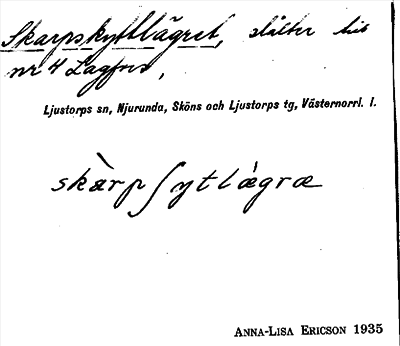 Skarpskyttlägret, slåtter till
nr 4 Lagfors,
Ljustorps sn, Njurunda, Sköns och Ljustorps tg, Västernorrl. l.
skàrpʃytlǻgræ
ANNA-LISA ERICSON 1935